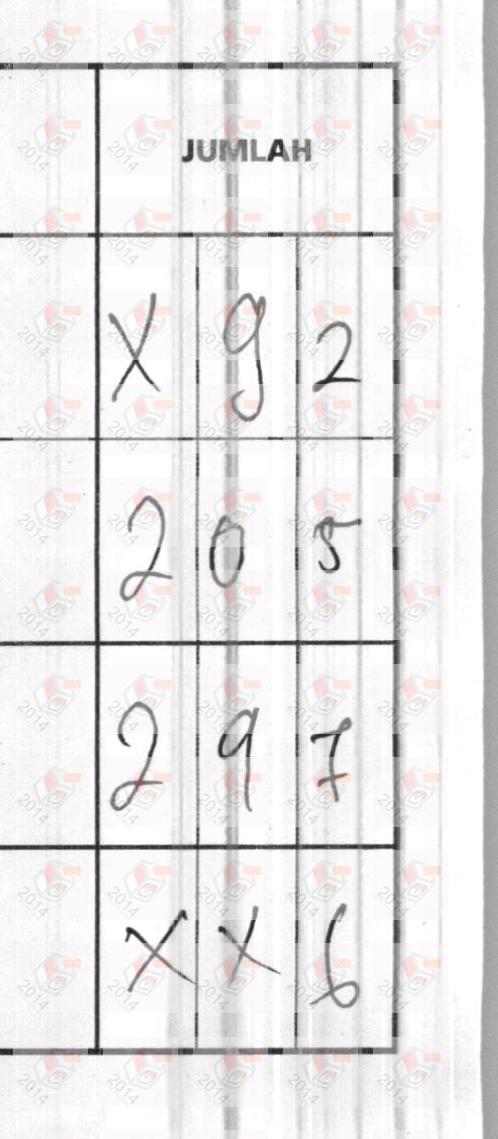 JUMLAH
X 9 2
2 0 5
2 9 7
X X 6